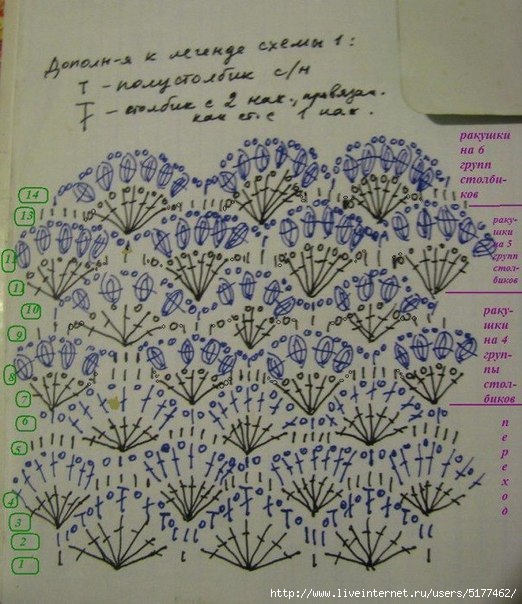 Дополн-я к легенде схемы 1:
т - полустолбик с/н
Ŧ - столбик с 2 нак., провязан.
как ст. с 1 нак.
ракушки
на 6
групп
столби-
ков
14
13
раку-
шки
на 5
групп
стол-
биков
1
1
10
9
раку-
шки
на 4
груп-
пы
стол-
биков
8
7
6
5
п
е
р
е
х
о
д
4
3
2
1
http://www.liveinternet.ru/users/5177462/